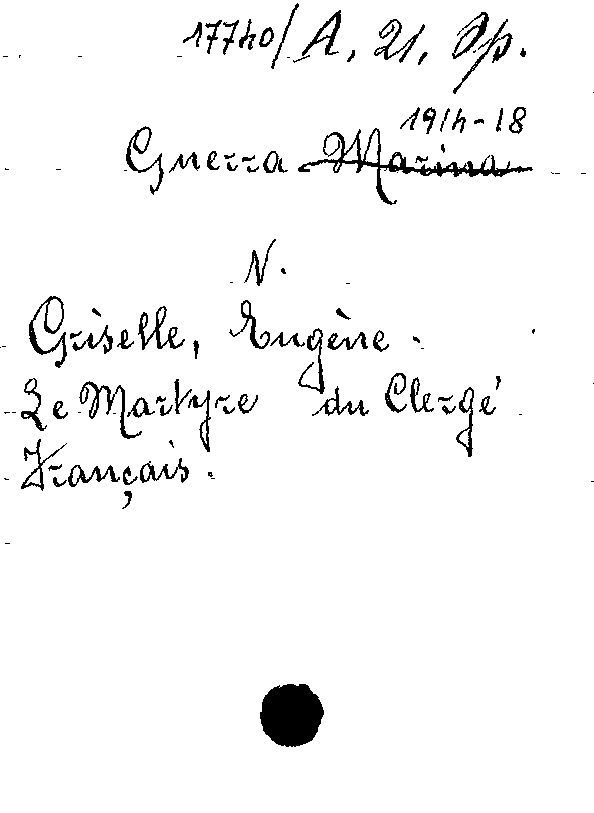 17740/A, 21, Op.
1914-18
Guerra Marina
N.
Griselle, Eugène.
Le Martyre du Clergé
Français.